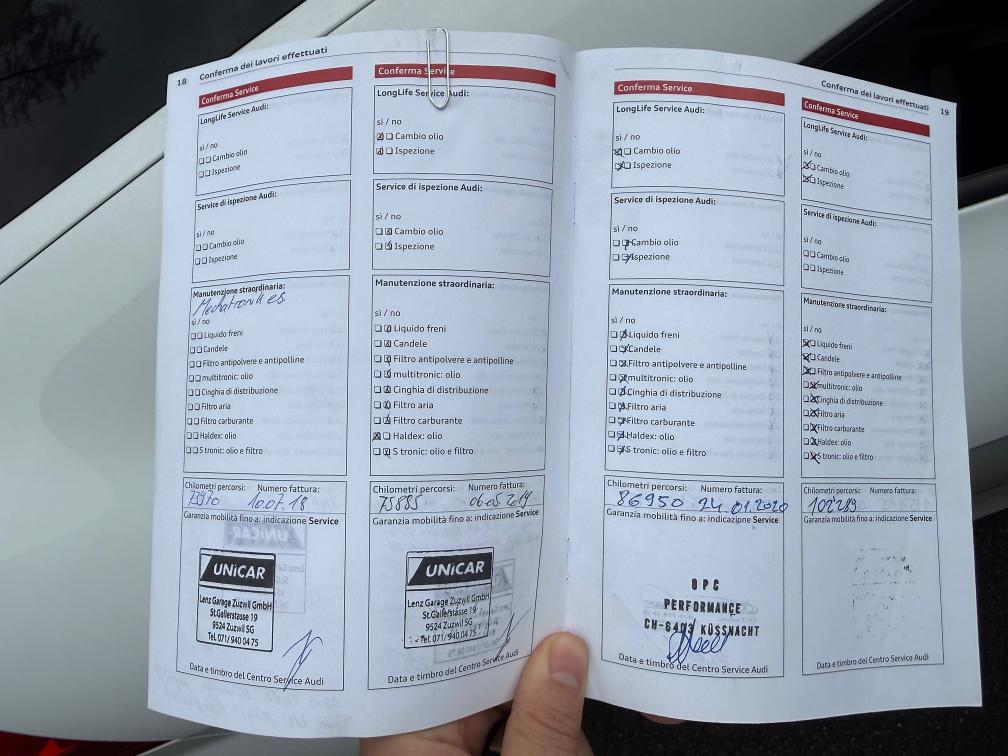 18 Conferma dei lavori effettuati
Conferma Service
LongLife Service Audi:
sì / no
Cambio olio
Ispezione
Service di ispezione Audi:
sì / no
Cambio olio
Ispezione
Manutenzione straordinaria:
sì / no
Liquido freni
Candele
Filtro antipolvere e antipolline
multitronic: olio
Cinghia di distribuzione
Filtro aria
Filtro carburante
Haldex: olio
S tronic: olio e filtro
Chilometri percorsi: Numero fattura:
73970 10.07.18
Garanzia mobilità fino a: indicazione Service
UNiCAR
Lenz Garage Zuzwil GmbH
St.Gallerstasse 19
9524 Zuzwil SG
Tel. 071/ 940 04 75
Data e timbro del Centro Service Audi
Conferma Service
LongLife Service Audi:
sì / no
Cambio olio
Ispezione
Service di ispezione Audi:
sì / no
Cambio olio
Ispezione
Manutenzione straordinaria:
sì / no
Liquido freni
Candele
Filtro antipolvere e antipolline
multitronic: olio
Cinghia di distribuzione
Filtro aria
Filtro carburante
Haldex: olio
S tronic: olio e filtro
Chilometri percorsi: Numero fattura:
75885 06.05.2019
Garanzia mobilità fino a: indicazione Service
UNiCAR
Lenz Garage Zuzwil GmbH
St.Gallerstasse 19
9524 Zuzwil SG
Tel. 071/ 940 04 75
Data e timbro del Centro Service Audi
Conferma dei lavori effettuati 19
Conferma Service
LongLife Service Audi:
sì / no
Cambio olio
Ispezione
Service di ispezione Audi:
sì / no
Cambio olio
Ispezione
Manutenzione straordinaria:
sì / no
Liquido freni
Candele
Filtro antipolvere e antipolline
multitronic: olio
Cinghia di distribuzione
Filtro aria
Filtro carburante
Haldex: olio
S tronic: olio e filtro
Chilometri percorsi: Numero fattura:
86950 24.01.2020
Garanzia mobilità fino a: indicazione Service
OPC
PERFORMANCE
CH-6403 KÜSSNACHT
Data e timbro del Centro Service Audi
Conferma Service
LongLife Service Audi:
sì / no
Cambio olio
Ispezione
Service di ispezione Audi:
sì / no
Cambio olio
Ispezione
Manutenzione straordinaria:
sì / no
Liquido freni
Candele
Filtro antipolvere e antipolline
multitronic: olio
Cinghia di distribuzione
Filtro aria
Filtro carburante
Haldex: olio
S tronic: olio e filtro
Chilometri percorsi: Numero fattura:
102289
Garanzia mobilità fino a: indicazione Service
Data e timbro del Centro Service Audi